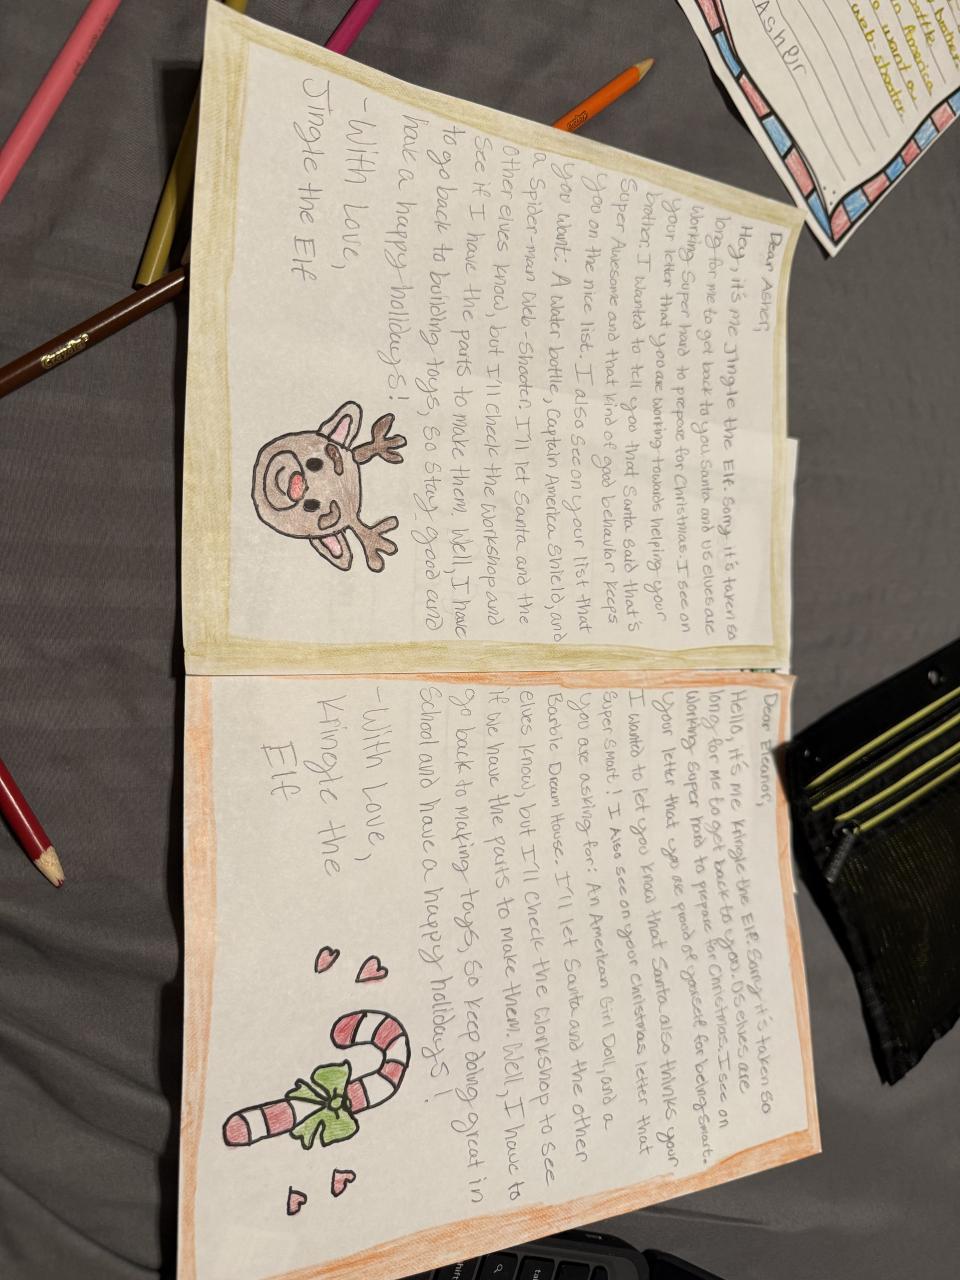 Dear Asher,
Hey, it's me Jingle the Elf. Sorry it's taken so
long for me to get back to you. Santa and us elves are
working super hard to prepare for Christmas. I see on
your letter that you are working towards helping your
brother. I wanted to tell you that Santa said that's
super Awesome and that kind of good behavior keeps
you on the nice list. I also see on your list that
you want: A water bottle, Captain America Shield, and
a Spider-man Web-Shooter. I'll let Santa and the
other elves know, but I'll check the workshop and
see if I have the parts to make them. Well, I have
to go back to building toys, so stay good and
have a happy holidays!
-With Love,
Jingle the Elf
Dear Eleanor,
Hello, it's me Kringle the Elf. Sorry it's taken so
long for me to get back to you. Us elves are
working super hard to prepare for Christmas. I see on
your letter that you are proud of yourself for being smart.
I wanted to let you know that Santa also thinks your
super smart! I Also see on your Christmas letter that
you are asking for: An American Girl Doll, and a
Barbie Dream House. I'll let Santa and the other
elves know, but I'll check the workshop to see
if we have the parts to make them. Well, I have to
go back to making toys, so keep doing great in
School and have a happy holidays!
-With Love,
Kringle the
Elf
brother
bottle
America
want a
web-shooter
Asher
Crayola
shift
tab